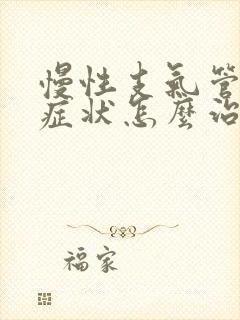 慢性支氣管
症狀怎麼治
福家